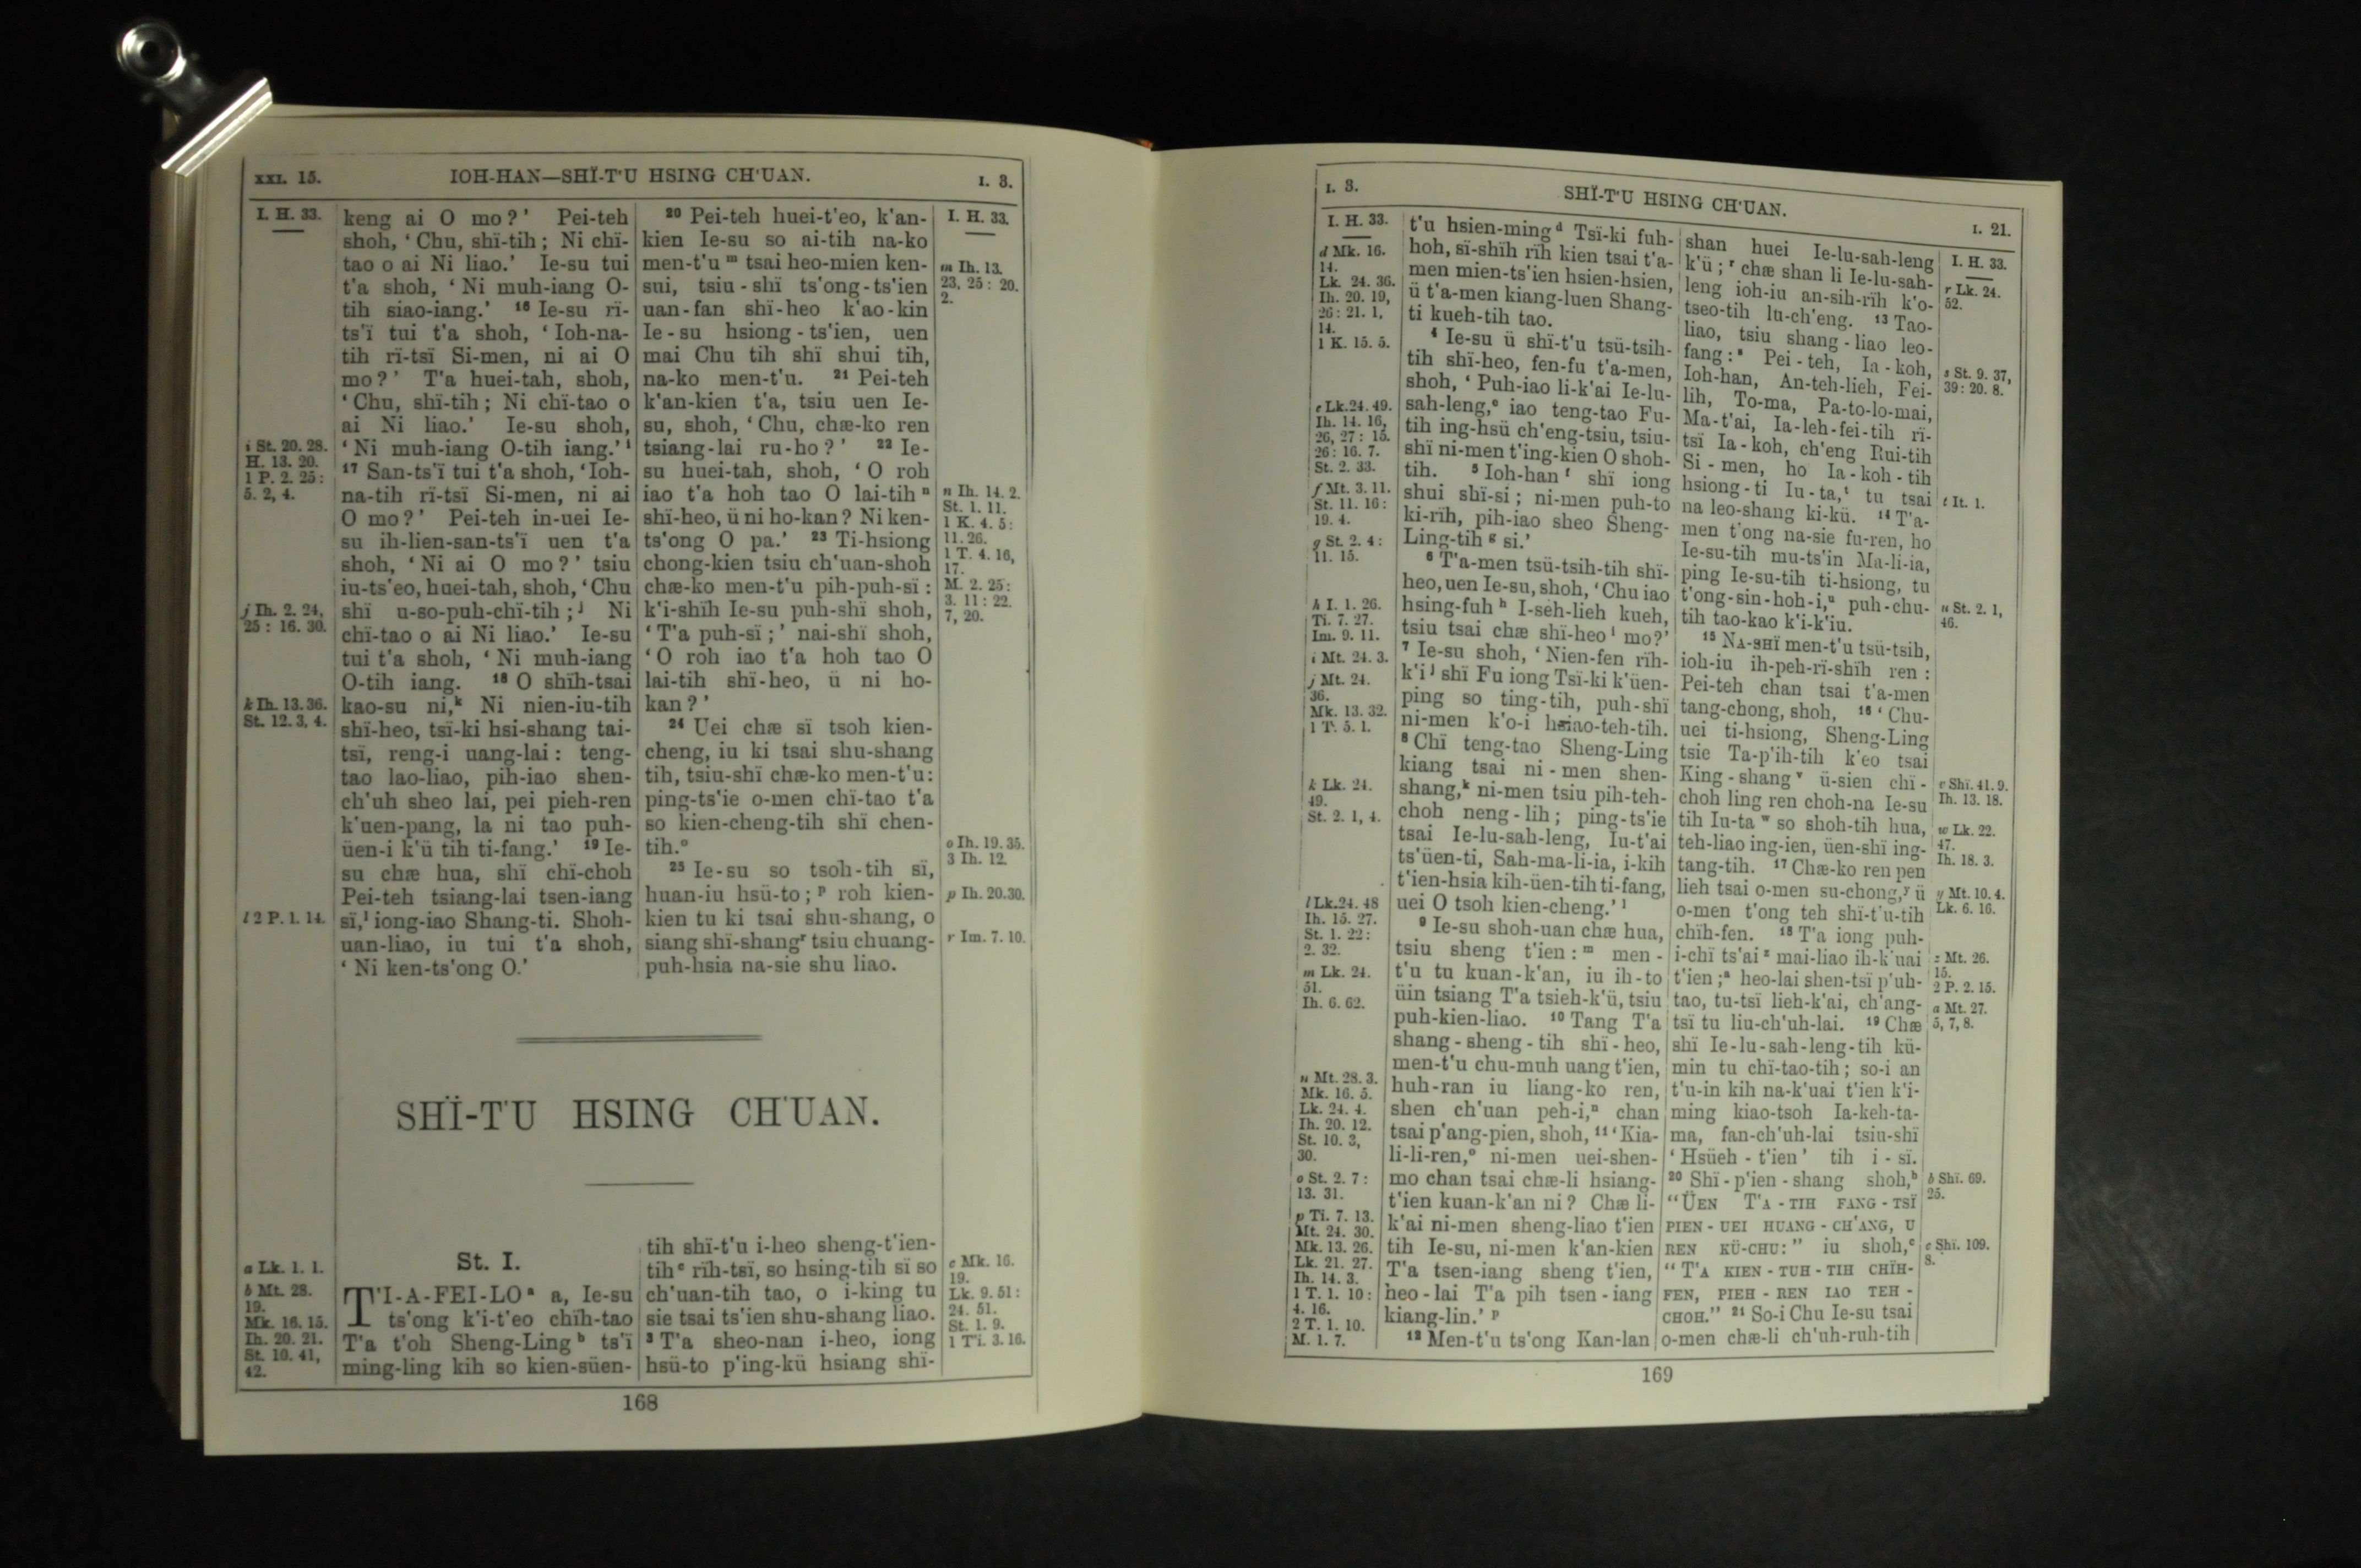 XXI. 15.
IOH-HAN—SHÏ-T'U HSING CH'UAN.
I. 3.
I. H. 33.
i St. 20. 28.
H. 13. 20.
1 P. 2. 25:
5. 2, 4.
j Ih. 2. 24,
25: 16. 30.
k Ih. 13. 36.
St. 12. 3, 4.
l 2 P. 1. 14.
keng ai O mo?' Pei-teh
shoh, ‘Chu, shï-tih; Ni chï-
tao o ai Ni liao.' Ie-su tui
t'a shoh, ‘Ni muh-iang O-
tih siao-iang.' 16 Ie-su rï-
ts'ï tui t'a shoh, ‘Ioh-na-
tih rï-tsï Si-men, ni ai O
mo?' T'a huei-tah, shoh,
‘Chu, shï-tih; Ni chï-tao o
ai Ni liao.' Ie-su shoh,
‘Ni muh-iang O-tih iang.' i
17 San-ts'ï tui t'a shoh, ‘Ioh-
na-tih rï-tsï Si-men, ni ai
O mo?' Pei-teh in-uei Ie-
su ih-lien-san-ts'ï uen t'a
shoh, ‘Ni ai O mo?' tsiu
iu-ts'eo, huei-tah, shoh, ‘Chu
shï u-so-puh-chï-tih; j Ni
chï-tao o ai Ni liao.' Ie-su
tui t'a shoh, ‘Ni muh-iang
O-tih iang. 18 O shïh-tsai
kao-su ni, k Ni nien-iu-tih
shï-heo, tsï-ki hsi-shang tai-
tsï, reng-i uang-lai: teng-
tao lao-liao, pih-iao shen-
ch'uh sheo lai, pei pieh-ren
k'uen-pang, la ni tao puh-
üen-i k'ü tih ti-fang.' 19 Ie-
su chæ hua, shï chï-choh
Pei-teh tsiang-lai tsen-iang
sï, l iong-iao Shang-ti. Shoh-
uan-liao, iu tui t'a shoh,
‘Ni ken-ts'ong O.'
20 Pei-teh huei-t'eo, k'an-
kien Ie-su so ai-tih na-ko
men-t'u m tsai heo-mien ken-
sui, tsiu-shï ts'ong-ts'ien
uan-fan shï-heo k'ao-kin
Ie-su hsiong-ts'ien, uen
mai Chu tih shï shui tih,
na-ko men-t'u. 21 Pei-teh
k'an-kien t'a, tsiu uen Ie-
su, shoh, ‘Chu, chæ-ko ren
tsiang-lai ru-ho?' 22 Ie-
su huei-tah, shoh, ‘O roh
iao t'a hoh tao O lai-tih n
shï-heo, ü ni ho-kan? Ni ken-
ts'ong O pa.' 23 Ti-hsiong
chong-kien tsiu ch'uan-shoh
chæ-ko men-t'u pih-puh-sï:
k'i-shïh Ie-su puh-shï shoh,
‘T'a puh-sï;' nai-shï shoh,
‘O roh iao t'a hoh tao O
lai-tih shï-heo, ü ni ho-
kan?'
24 Uei chæ sï tsoh kien-
cheng, iu ki tsai shu-shang
tih, tsiu-shï chæ-ko men-t'u:
ping-ts'ie o-men chï-tao t'a
so kien-cheng-tih shï chen-
tih. o
25 Ie-su so tsoh-tih sï,
huan-iu hsü-to; p roh kien-
kien tu ki tsai shu-shang, o
siang shï-shang r tsiu chuang-
puh-hsia na-sie shu liao.
I. H. 33.
m Ih. 13.
23, 25: 20.
2.
n Ih. 14. 2.
St. 1. 11.
1 K. 4. 5:
11. 26.
1 T. 4. 16,
17.
M. 2. 25:
3. 11: 22.
7, 20.
o Ih. 19. 35.
3 Ih. 12.
p Ih. 20. 30.
r Im. 7. 10.
SHÏ-T'U HSING CH'UAN.
a Lk. 1. 1.
b Mt. 28.
19.
Mk. 16. 15.
Ih. 20. 21.
St. 10. 41,
42.
St. I.
T'I-A-FEI-LO a a, Ie-su
ts'ong k'i-t'eo chïh-tao
T'a t'oh Sheng-Ling b ts'ï
ming-ling kih so kien-süen-
tih shï-t'u i-heo sheng-t'ien-
tih c rïh-tsï, so hsing-tih sï so
ch'uan-tih tao, o i-king tu
sie tsai ts'ien shu-shang liao.
3 T'a sheo-nan i-heo, iong
hsü-to p'ing-kü hsiang shï-
c Mk. 16.
19.
Lk. 9. 51:
24. 51.
St. 1. 9.
1 Ti. 3. 16.
168
I. 3.
SHÏ-T'U HSING CH'UAN.
I. 21.
I. H. 33.
d Mk. 16.
14.
Lk. 24. 36.
Ih. 20. 19,
26: 21. 1,
14.
1 K. 15. 5.
e Lk. 24. 49.
Ih. 14. 16,
26, 27: 15.
26: 16. 7.
St. 2. 33.
f Mt. 3. 11.
St. 11. 16:
19. 4.
g St. 2. 4:
11. 15.
h I. 1. 26.
Ti. 7. 27.
Im. 9. 11.
i Mt. 24. 3.
j Mt. 24.
36.
Mk. 13. 32.
1 T. 5. 1.
k Lk. 24.
49.
St. 2. 1, 4.
l Lk. 24. 48
Ih. 15. 27.
St. 1. 22:
2. 32.
m Lk. 24.
51.
Ih. 6. 62.
n Mt. 28. 3.
Mk. 16. 5.
Lk. 24. 4.
Ih. 20. 12.
St. 10. 3,
30.
o St. 2. 7:
13. 31.
p Ti. 7. 13.
Mt. 24. 30.
Mk. 13. 26.
Lk. 21. 27.
Ih. 14. 3.
1 T. 1. 10:
4. 16.
2 T. 1. 10.
M. 1. 7.
t'u hsien-ming d Tsï-ki fuh-
hoh, sï-shïh rïh kien tsai t'a-
men mien-ts'ien hsien-hsien,
ü t'a-men kiang-luen Shang-
ti kueh-tih tao.
4 Ie-su ü shï-t'u tsü-tsih-
tih shï-heo, fen-fu t'a-men,
shoh, ‘Puh-iao li-k'ai Ie-lu-
sah-leng, e iao teng-tao Fu-
tih ing-hsü ch'eng-tsiu, tsiu-
shï ni-men t'ing-kien O shoh-
tih. 5 Ioh-han f shï iong
shui shï-si; ni-men puh-to
ki-rïh, pih-iao sheo Sheng-
Ling-tih g si.'
6 T'a-men tsü-tsih-tih shï-
heo, uen Ie-su, shoh, ‘Chu iao
hsing-fuh h I-seh-lieh kueh,
tsiu tsai chæ shï-heo i mo?'
7 Ie-su shoh, ‘Nien-fen rïh-
k'i j shï Fu iong Tsï-ki k'üen-
ping so ting-tih, puh-shï
ni-men k'o-i hsiao-teh-tih.
8 Chï teng-tao Sheng-Ling
kiang tsai ni-men shen-
shang, k ni-men tsiu pih-teh-
choh neng-lih; ping-ts'ie
tsai Ie-lu-sah-leng, Iu-t'ai
ts'üen-ti, Sah-ma-li-ia, i-kih
t'ien-hsia kih-üen-tih ti-fang,
uei O tsoh kien-cheng.' l
9 Ie-su shoh-uan chæ hua,
tsiu sheng t'ien: m men-
t'u tu kuan-k'an, iu ih-to
üin tsiang T'a tsieh-k'ü, tsiu
puh-kien-liao. 10 Tang T'a
shang-sheng-tih shï-heo,
men-t'u chu-muh uang t'ien,
huh-ran iu liang-ko ren,
shen ch'uan peh-i, n chan
tsai p'ang-pien, shoh, 11 ‘Kia-
li-li-ren, o ni-men uei-shen-
mo chan tsai chæ-li hsiang-
t'ien kuan-k'an ni? Chæ li-
k'ai ni-men sheng-liao t'ien
tih Ie-su, ni-men k'an-kien
T'a tsen-iang sheng t'ien,
heo-lai T'a pih tsen-iang
kiang-lin.' p
12 Men-t'u ts'ong Kan-lan
shan huei Ie-lu-sah-leng
k'ü; r chæ shan li Ie-lu-sah-
leng ioh-iu an-sih-rïh k'o-
tseo-tih lu-ch'eng. 13 Tao-
liao, tsiu shang-liao leo-
fang: s Pei-teh, Ia-koh,
Ioh-han, An-teh-lieh, Fei-
lih, To-ma, Pa-to-lo-mai,
Ma-t'ai, Ia-leh-fei-tih rï-
tsï Ia-koh, ch'eng Rui-tih
Si-men, ho Ia-koh-tih
hsiong-ti Iu-ta, t tu tsai
na leo-shang ki-kü. 14 T'a-
men t'ong na-sie fu-ren, ho
Ie-su-tih mu-ts'in Ma-li-ia,
ping Ie-su-tih ti-hsiong, tu
t'ong-sin-hoh-i, u puh-chu-
tih tao-kao k'i-k'iu.
15 NA-SHÏ men-t'u tsü-tsih,
ioh-iu ih-peh-rï-shïh ren:
Pei-teh chan tsai t'a-men
tang-chong, shoh, 16 ‘Chu-
uei ti-hsiong, Sheng-Ling
tsie Ta-p'ih-tih k'eo tsai
King-shang v ü-sien chï-
choh ling ren choh-na Ie-su
tih Iu-ta w so shoh-tih hua,
teh-liao ing-ien, üen-shï ing-
tang-tih. 17 Chæ-ko ren pen
lieh tsai o-men su-chong, y ü
o-men t'ong teh shï-t'u-tih
chïh-fen. 18 T'a iong puh-
i-chï ts'ai z mai-liao ih-k'uai
t'ien; a heo-lai shen-tsï p'uh-
tao, tu-tsï lieh-k'ai, ch'ang-
tsï tu liu-ch'uh-lai. 19 Chæ
shï Ie-lu-sah-leng-tih kü-
min tu chï-tao-tih; so-i an
t'u-in kih na-k'uai t'ien k'i-
ming kiao-tsoh Ia-keh-ta-
ma, fan-ch'uh-lai tsiu-shï
‘Hsüeh-t'ien' tih i-sï.
20 Shï-p'ien-shang shoh, b
“ÜEN T'A-TIH FANG-TSÏ
PIEN-UEI HUANG-CH'ANG, U
REN KÜ-CHU:” iu shoh, c
“T'A KIEN-TUH-TIH CHÏH-
FEN, PIEH-REN IAO TEH-
CHOH.” 21 So-i Chu Ie-su tsai
o-men chæ-li ch'uh-ruh-tih
I. H. 33.
r Lk. 24.
52.
s St. 9. 37,
39: 20. 8.
t It. 1.
u St. 2. 1,
46.
v Shï. 41. 9.
Ih. 13. 18.
w Lk. 22.
47.
Ih. 18. 3.
y Mt. 10. 4.
Lk. 6. 16.
z Mt. 26.
15.
2 P. 2. 15.
a Mt. 27.
5, 7, 8.
b Shï. 69.
25.
c Shï. 109.
8.
169